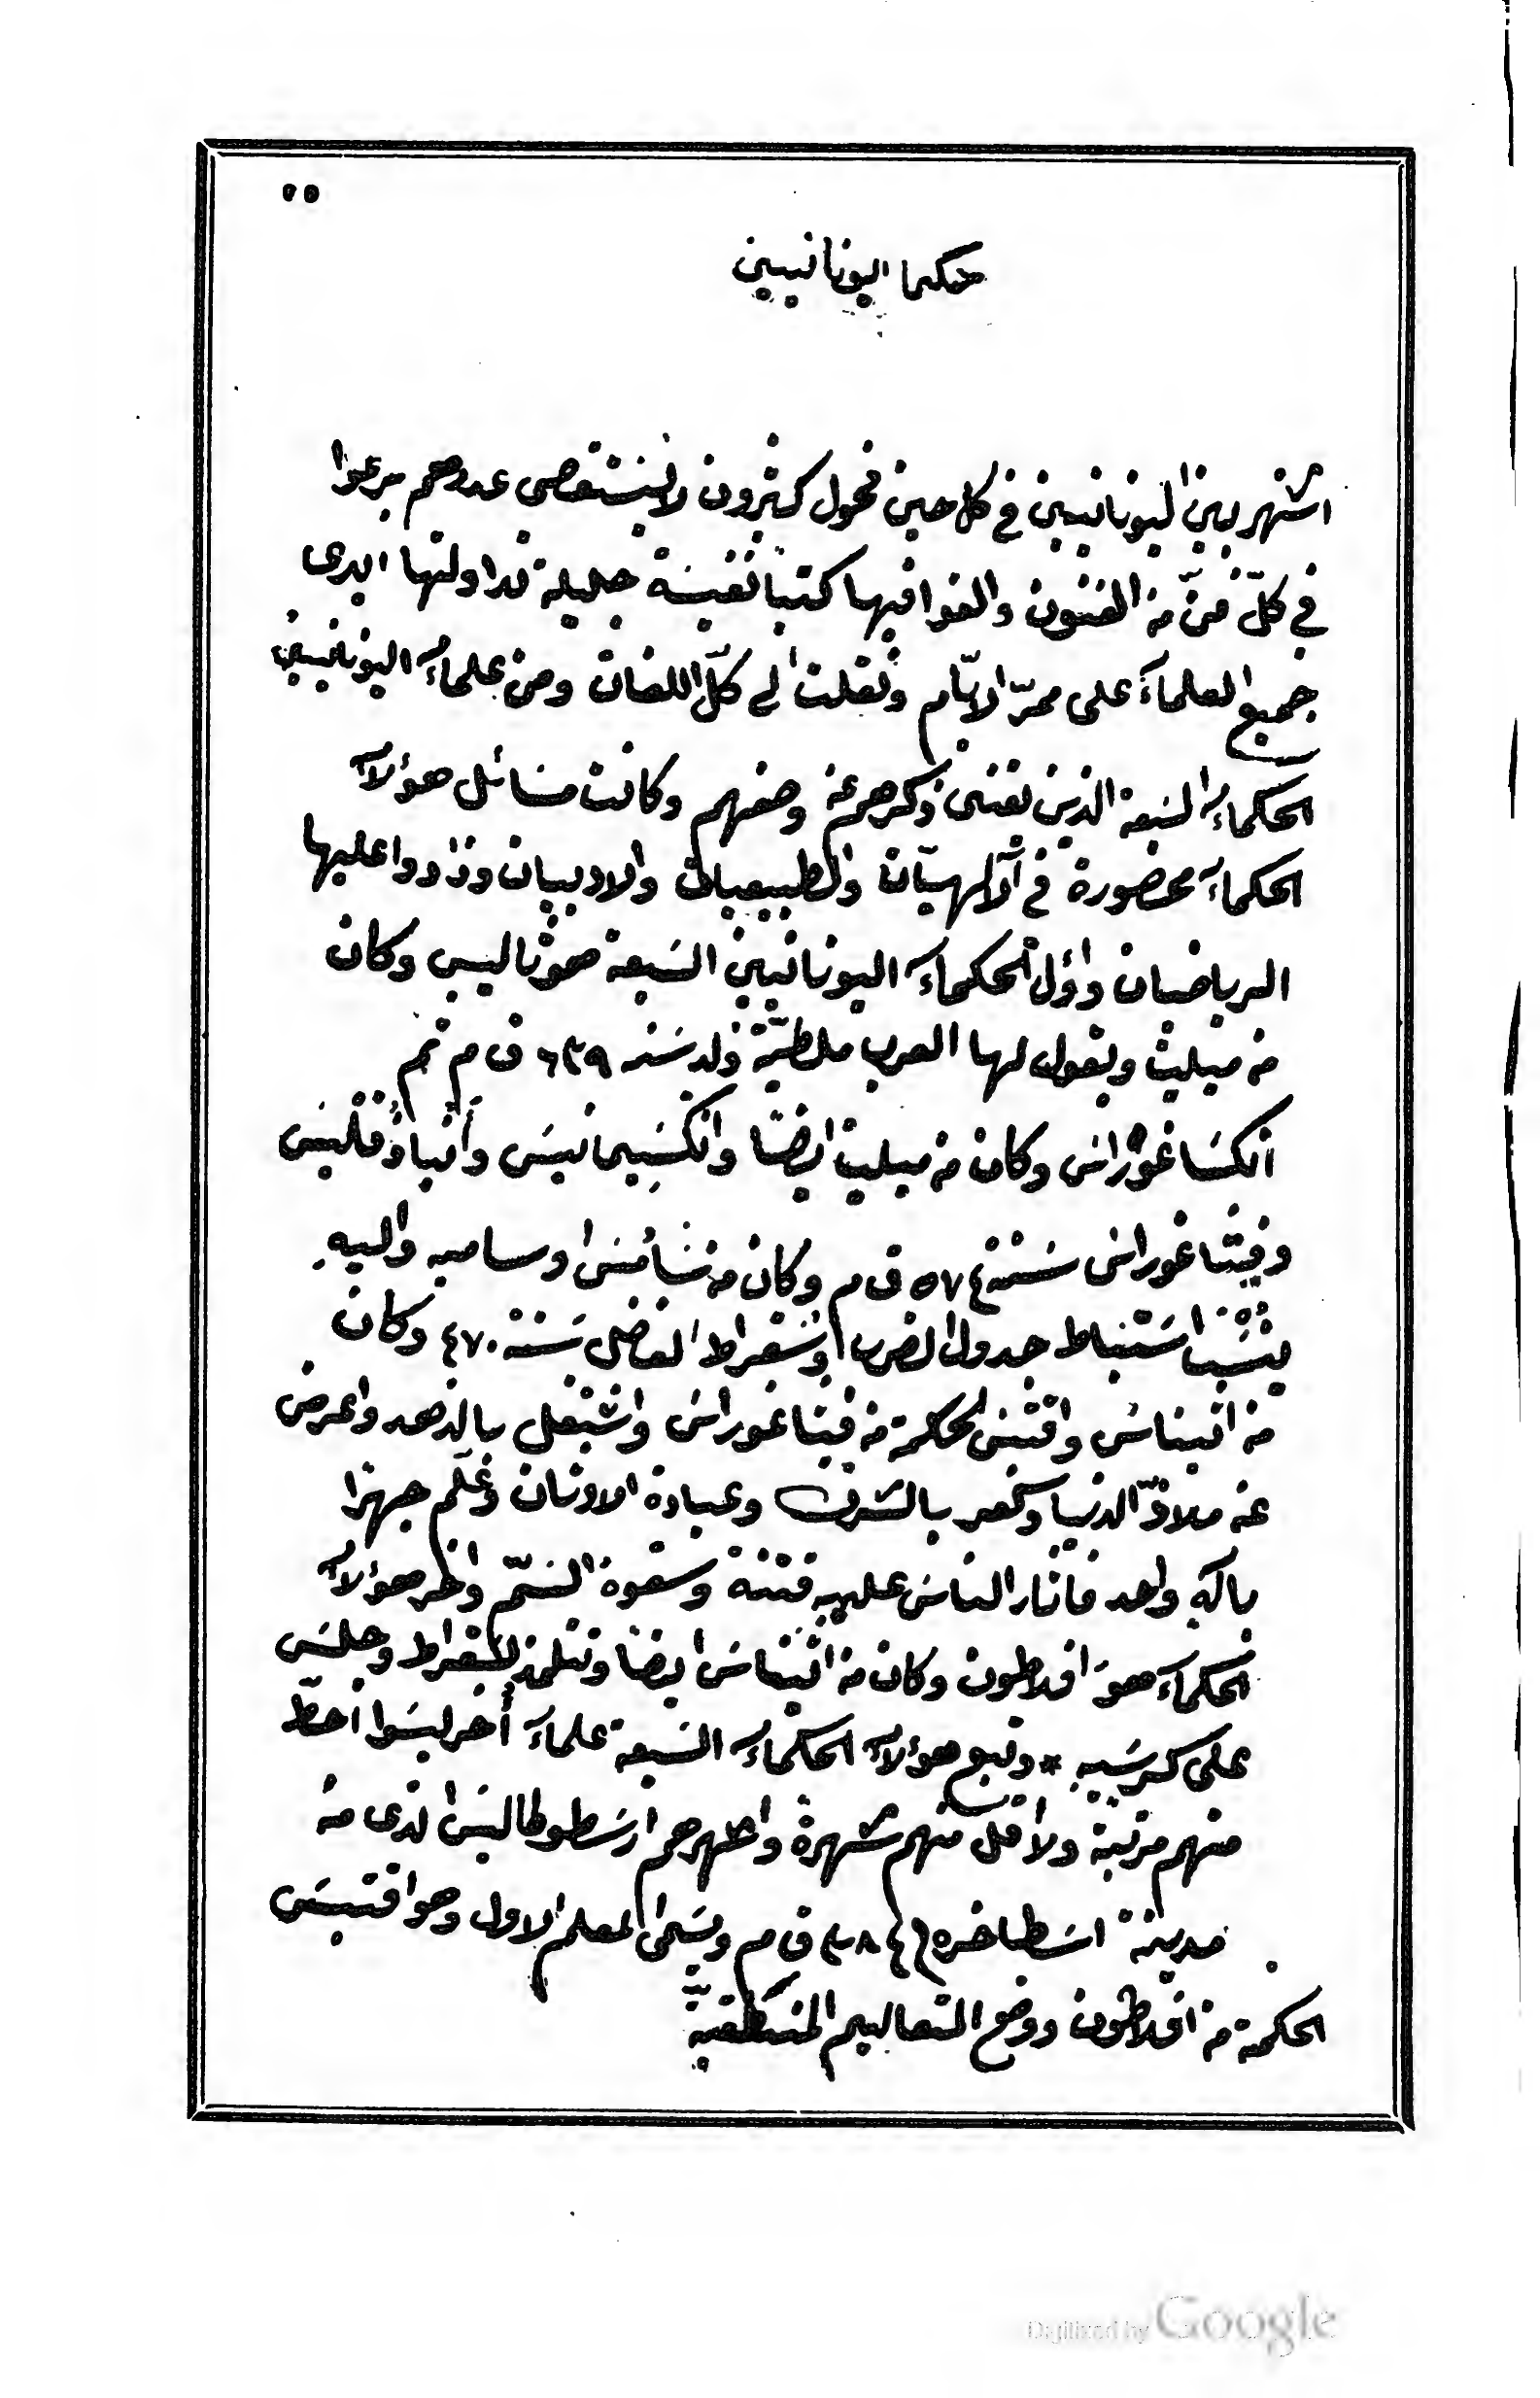 ٢٥
حكما اليونانيين
اشتهر بين اليونانيين في كل حين فحول كثيرون لا يستقصى عددهم برعوا
في كلّ فنّ من الفنون والفوا فيها كتبا نفيسة جليلة تداولتها ايدى
جميع العلمآء على ممرّ الايّام ونقلت الى كلّ اللغات ومن علمآء اليونانيين
الحكمآء السبعة الذين يغنى ذكرهم عن وصفهم وكانت مسائل هؤلآء
الحكمآء محصورة في الآلهيّات والطبيعيات والادبيات وزادوا عليها
الرياضيات واوّل الحكمآء اليونانيين السبعة هو ثاليس وكان
من ميليت ويقول لها العرب ملطيّة ولد سنه ٦٣٩ ق م ثم
انكساغوراس وكان من ميليت ايضًا وانكسيمانيس وأنباذُقليس
وفيثاغوراس سنة ٥٧٤ ق م وكان من ساُمس او ساميه واليهِ
ينسب استنباط جدول الضرب وسقراط الفاضل سنة ٤٧٠ وكان
من اثيناس واقتبس الحكمة من فيثاغوراس واشتغل بالزهد واعرض
عن ملاذّ الدنيا وكفر بالشرك وعبادة الاوثان وعلّم جهرًا
بالهٍ واحد فاثار الناس عليهِ فتنة وسقوه السّم واخر هؤلآء
الحكمآء هو افلاطون وكان من اثيناس ايضا وتتلمذ لسقراط وجلس
على كرسيهِ * وتبع هؤلآء الحكمآء السبعة علمآء أخر ليسوا احطّ
منهم مرتبة ولا اقل منهم شهرة واظهرهم ارسطوطاليس الذى من
مدينة اسطاخره (٣٨٤ ق م ويسمى المعلم الاول وهو اقتبس
الحكمة من افلاطون ووضع التعاليم المنطقيّة
Digitized by Google